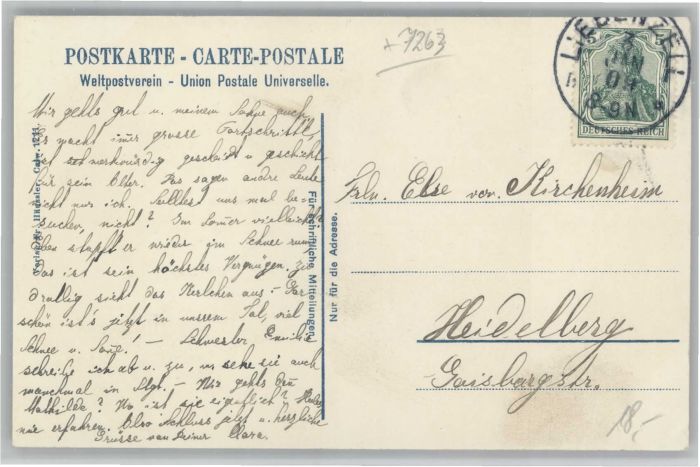 +7263
POSTKARTE - CARTE-POSTALE
Weltpostverein - Union Postale Universelle.
LIEBENZELL
JAN
09
8-9N
DEUTSCHES REICH
Mir gehts gut u. meinem Sohne auch,
er macht immer grosse Fortschritte,
ist merkwürdig gescheidt u geschickt
für sein Alter. Das sagen andre Leute
nicht nur ich. Solltest uns mal be-
suchen, nicht? Im Sommer vielleicht?
Eben stapft er wieder im Schnee rum
das ist sein höchstes Vergnügen, zu
drollig sieht das Kerlchen aus. - Gar
schön ist's jetzt in unserem Tal, viel
Schnee u. Sonne! - Schwester Emilie
schreibe ich ab u. zu, u. sehe sie auch
manchmal in Stgt. - Wie gehts denn
Mathilde? Wo ist sie eigentlich?
nie erfahren. Also Schluss jetzt u. herzliche
Grüsse von Deiner Clara.
Für schriftliche Mitteilungen
Nur für die Adresse.
Frln. Else von Kirchenheim
Heidelberg
Gaisbergstr.
18,-